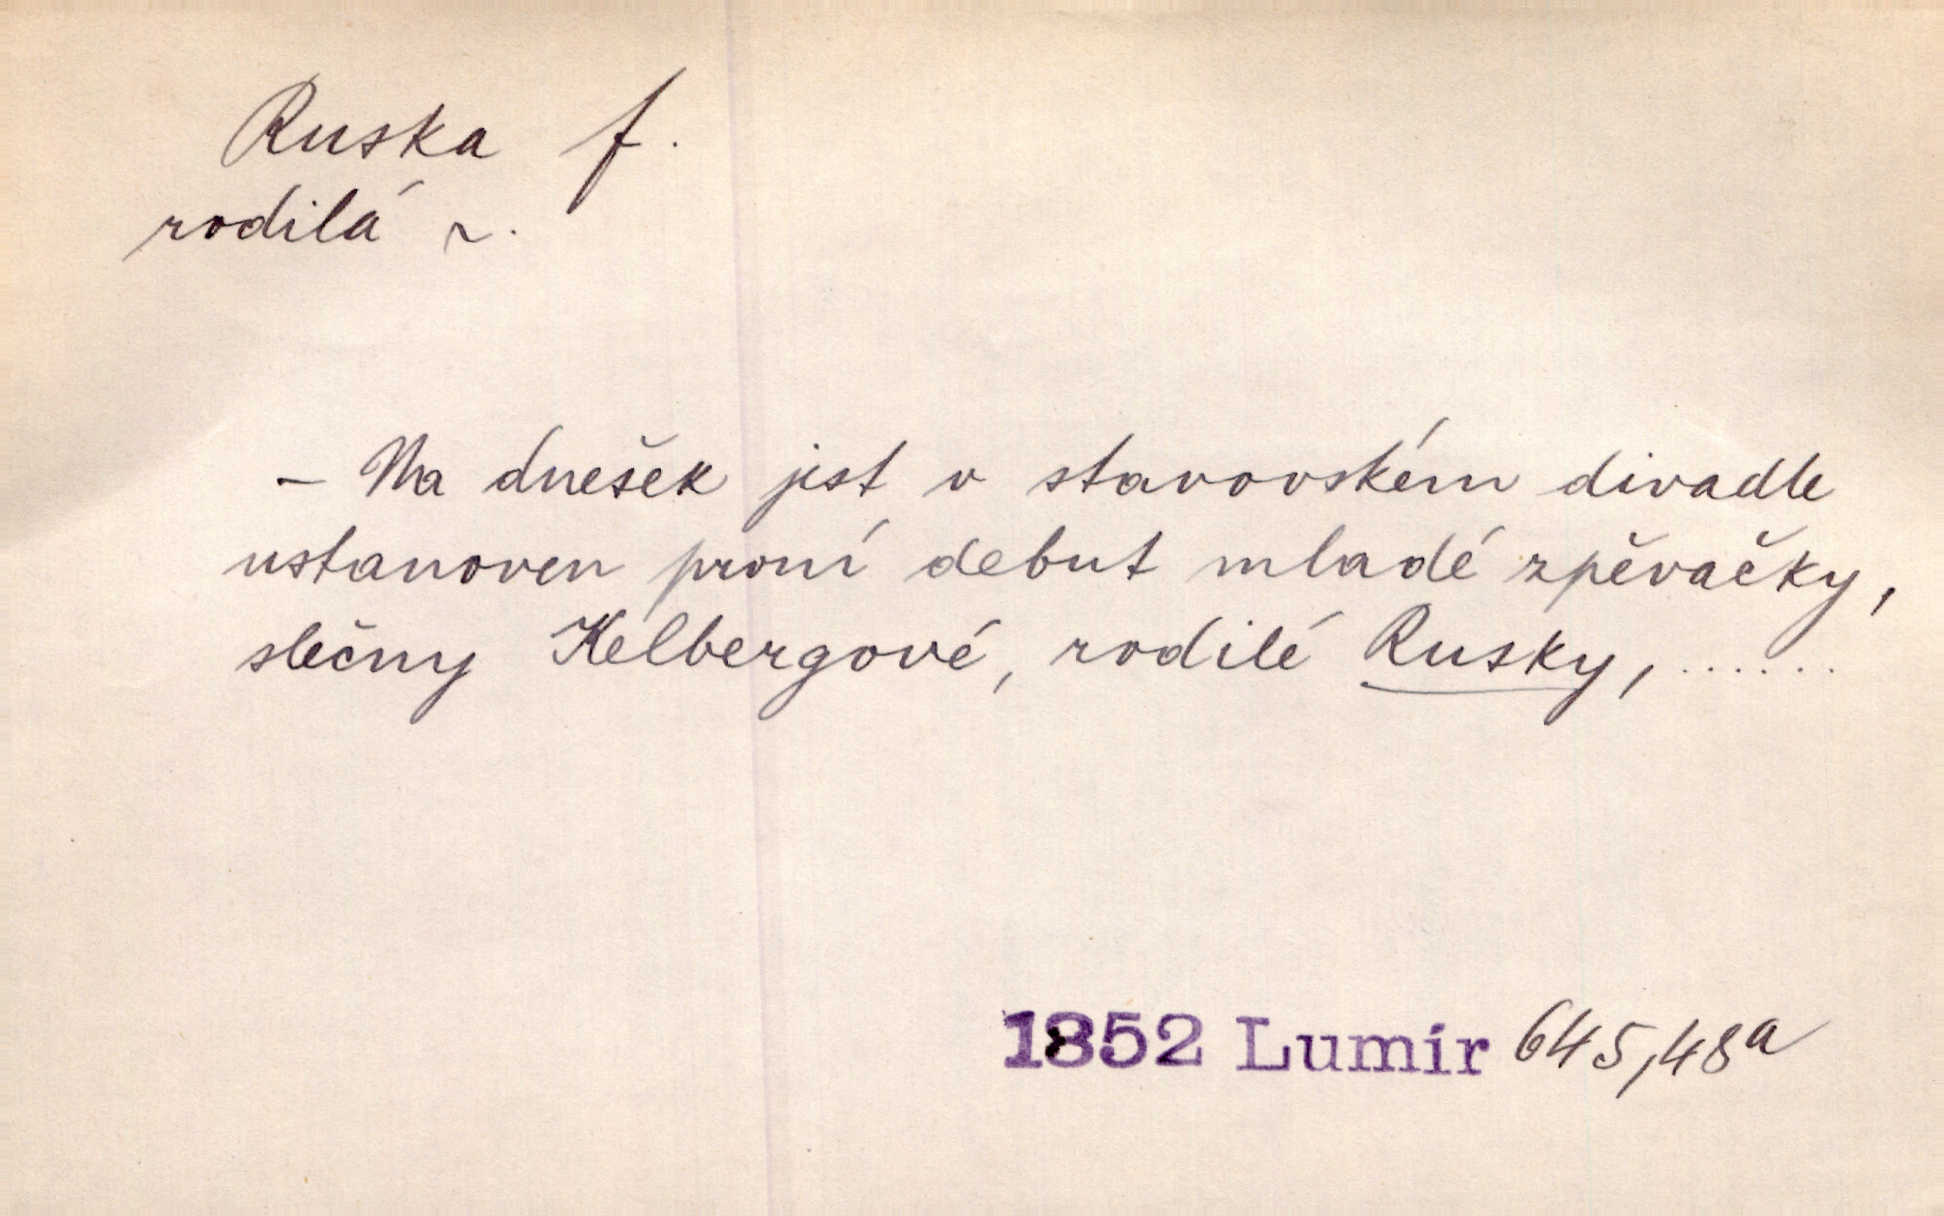 Ruska f.
rodilá ~.
– Na dnešek jest v stavovském divadle
ustanoven první debut mladé zpěvačky,
slečny Kelbergové, rodilé Rusky, ......
1852 Lumír 645,48a